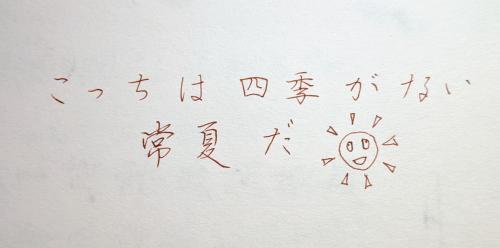 こっちは四季がない
常夏だ